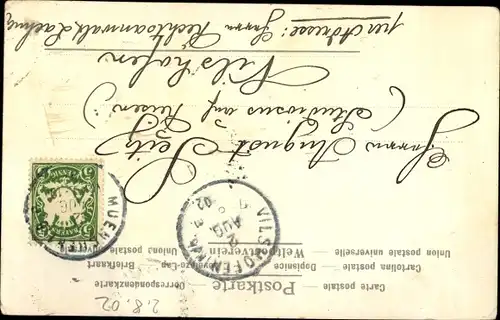 Carte postale Postkarte Correspondenzkarte
Cartolina postale Dopisnice Levelező-Lap Briefkaart
Union postale universelle Weltpostverein Unione postale
VILSHOFEN
2 AUG
02
BAYERN
MUENCHEN
Herrn August Seitz
(Studiosus auf Reisen)
Vilshofen
per Adresse: Herrn Rechtsanwalt
2.8.02